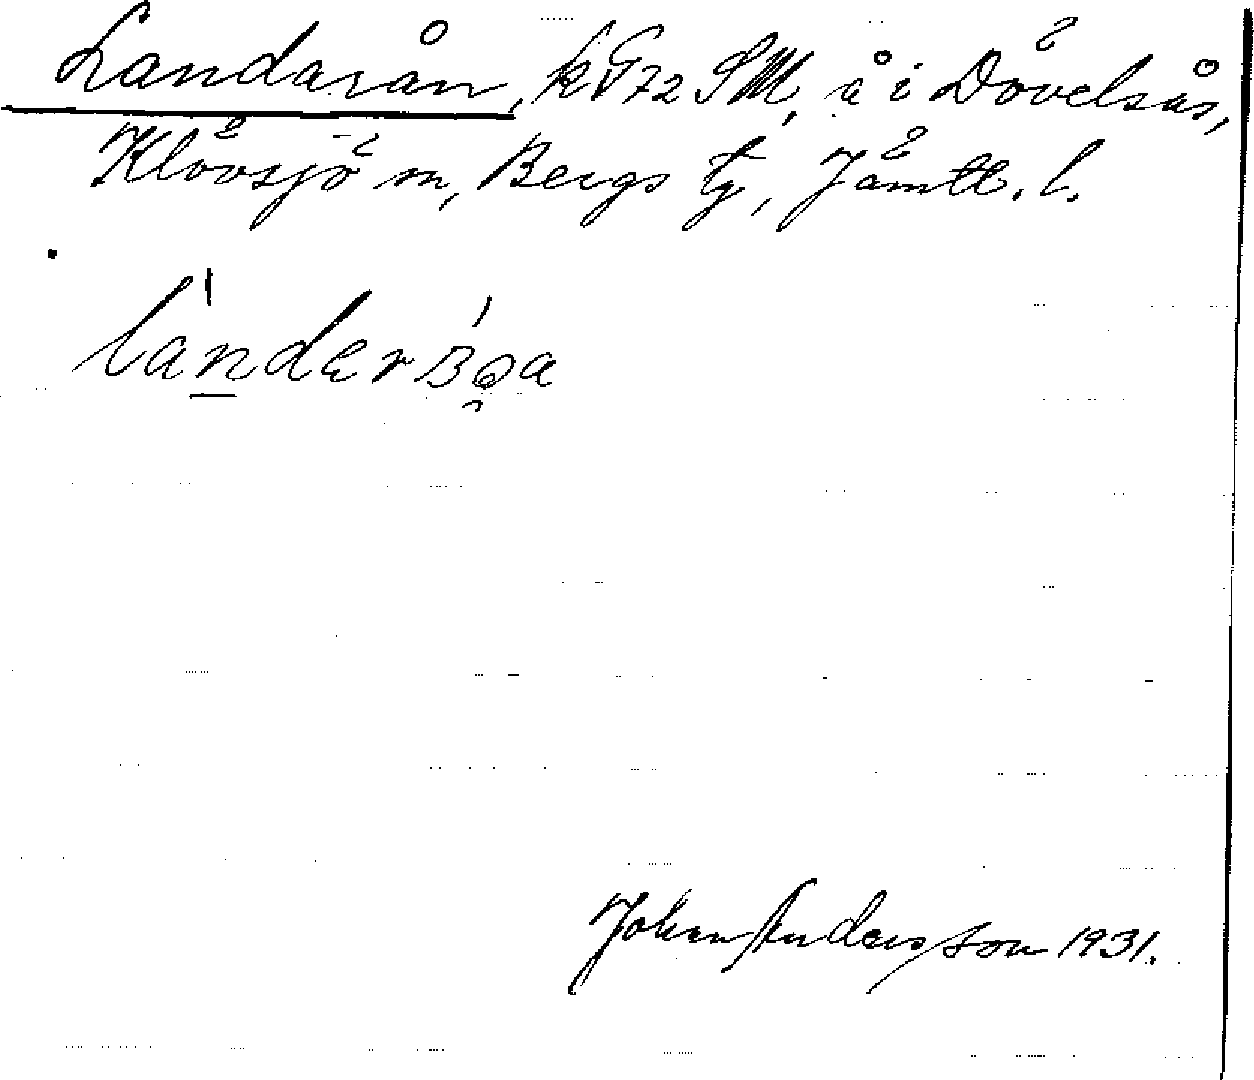 Landarån, kF 72 SM, å i Dövelsås,
Klövsjö sn, Bergs tg, Jämtl. l.
Johan Andersson 1931.